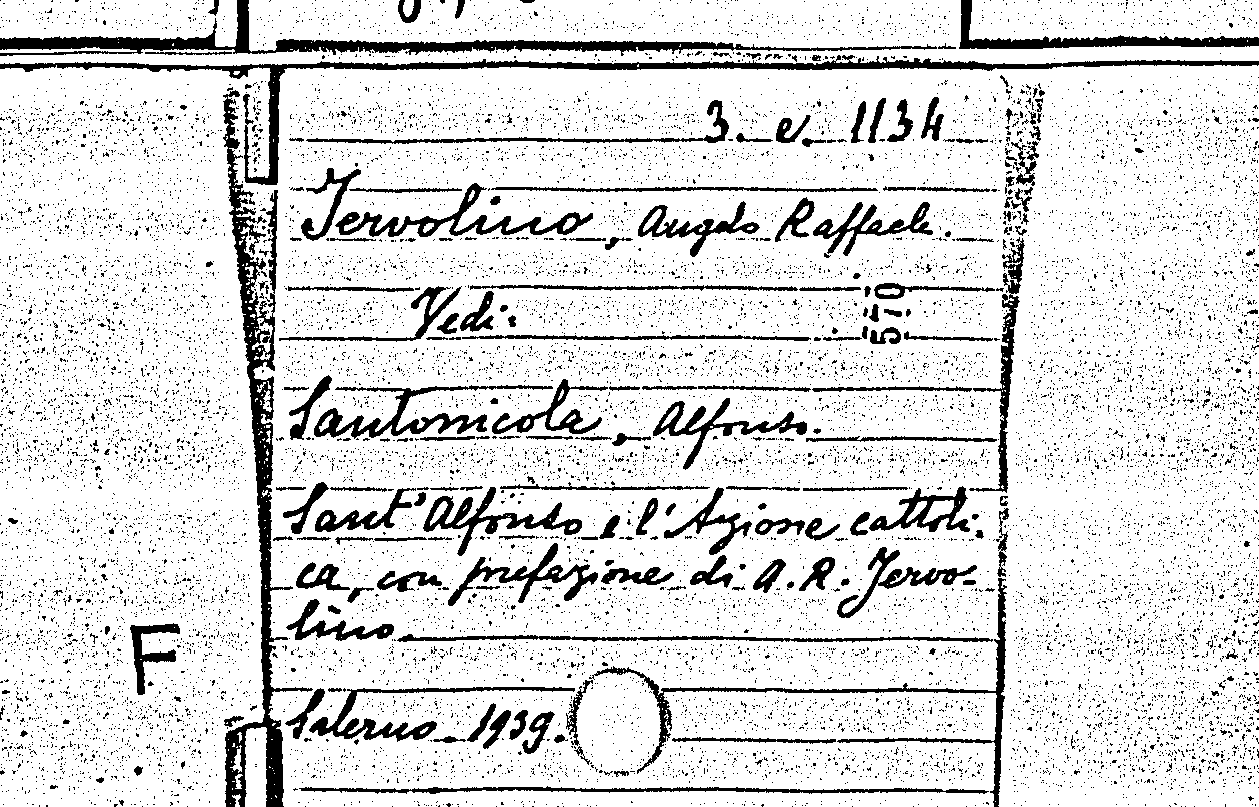 3. e. 1134
Jervolino, Angelo Raffaele.
Vedi:
570
Santonicola, Alfonso.
Sant'Alfonso e l'Azione cattoli-
ca, con prefazione di A. R. Jervo-
lino.
F
Salerno. 1939.